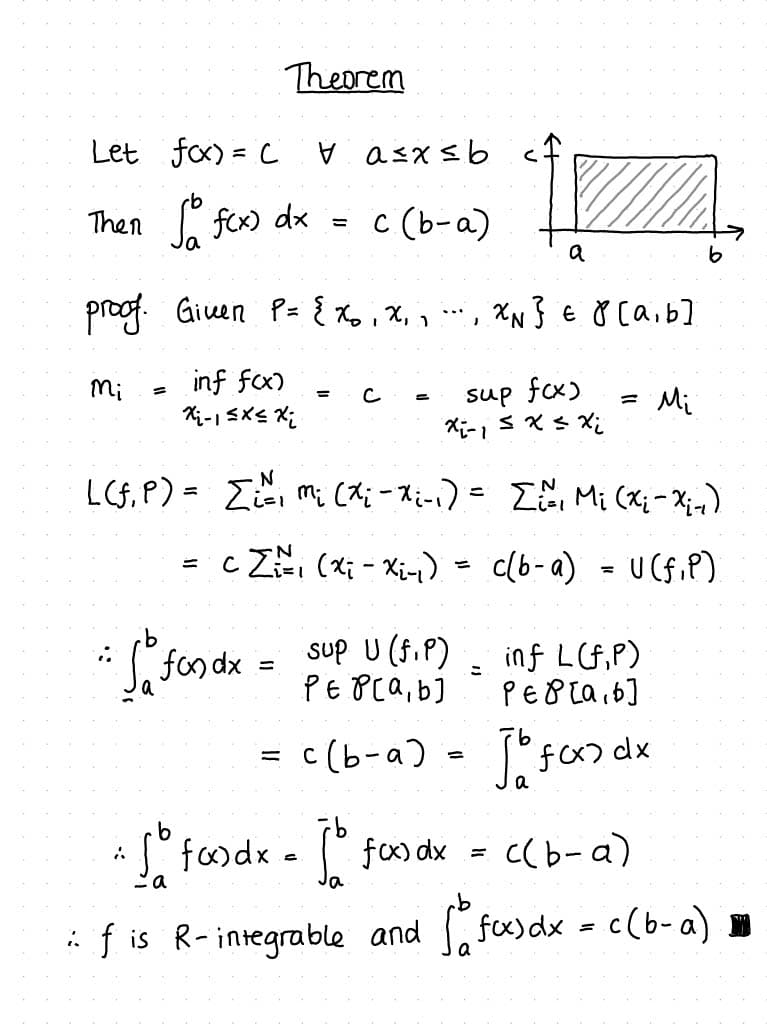 Theorem
Let f(x) = c ∀ a ≤ x ≤ b c
Then ∫_a^b f(x) dx = c (b-a)
a b
proof. Given P = { x₀, x₁, ⋯, x_N } ∈ 𝒫[a,b]
m_i = inf f(x) = c = sup f(x) = M_i
x_{i-1} ≤ x ≤ x_i x_{i-1} ≤ x ≤ x_i
L(f,P) = Σ_{i=1}^N m_i (x_i - x_{i-1}) = Σ_{i=1}^N M_i (x_i - x_{i-1})
= c Σ_{i=1}^N (x_i - x_{i-1}) = c(b-a) = U(f,P)
∴ \underline{∫}_a^b f(x) dx = sup U(f,P) = inf L(f,P)
P ∈ 𝒫[a,b] P ∈ 𝒫[a,b]
= c(b-a) = \overline{∫}_a^b f(x) dx
∴ \underline{∫}_a^b f(x) dx = \overline{∫}_a^b f(x) dx = c(b-a)
∴ f is R-integrable and ∫_a^b f(x) dx = c(b-a) ∎